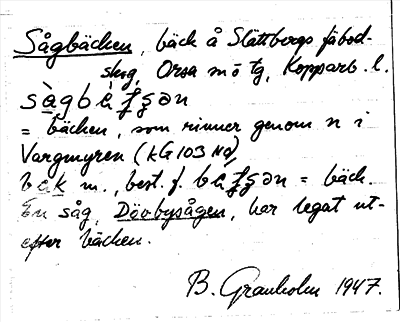 Sågbäcken, bäck å Slättbergs fäbod-
skog, Orsa sn o tg, Kopparb. l.
= bäcken, som rinner genom n i
Vargmyren (kG103 Nd)
m., best. f. = bäck.
En såg, Dövbysågen, har legat ut-
efter bäcken.
B. Granholm 1947.